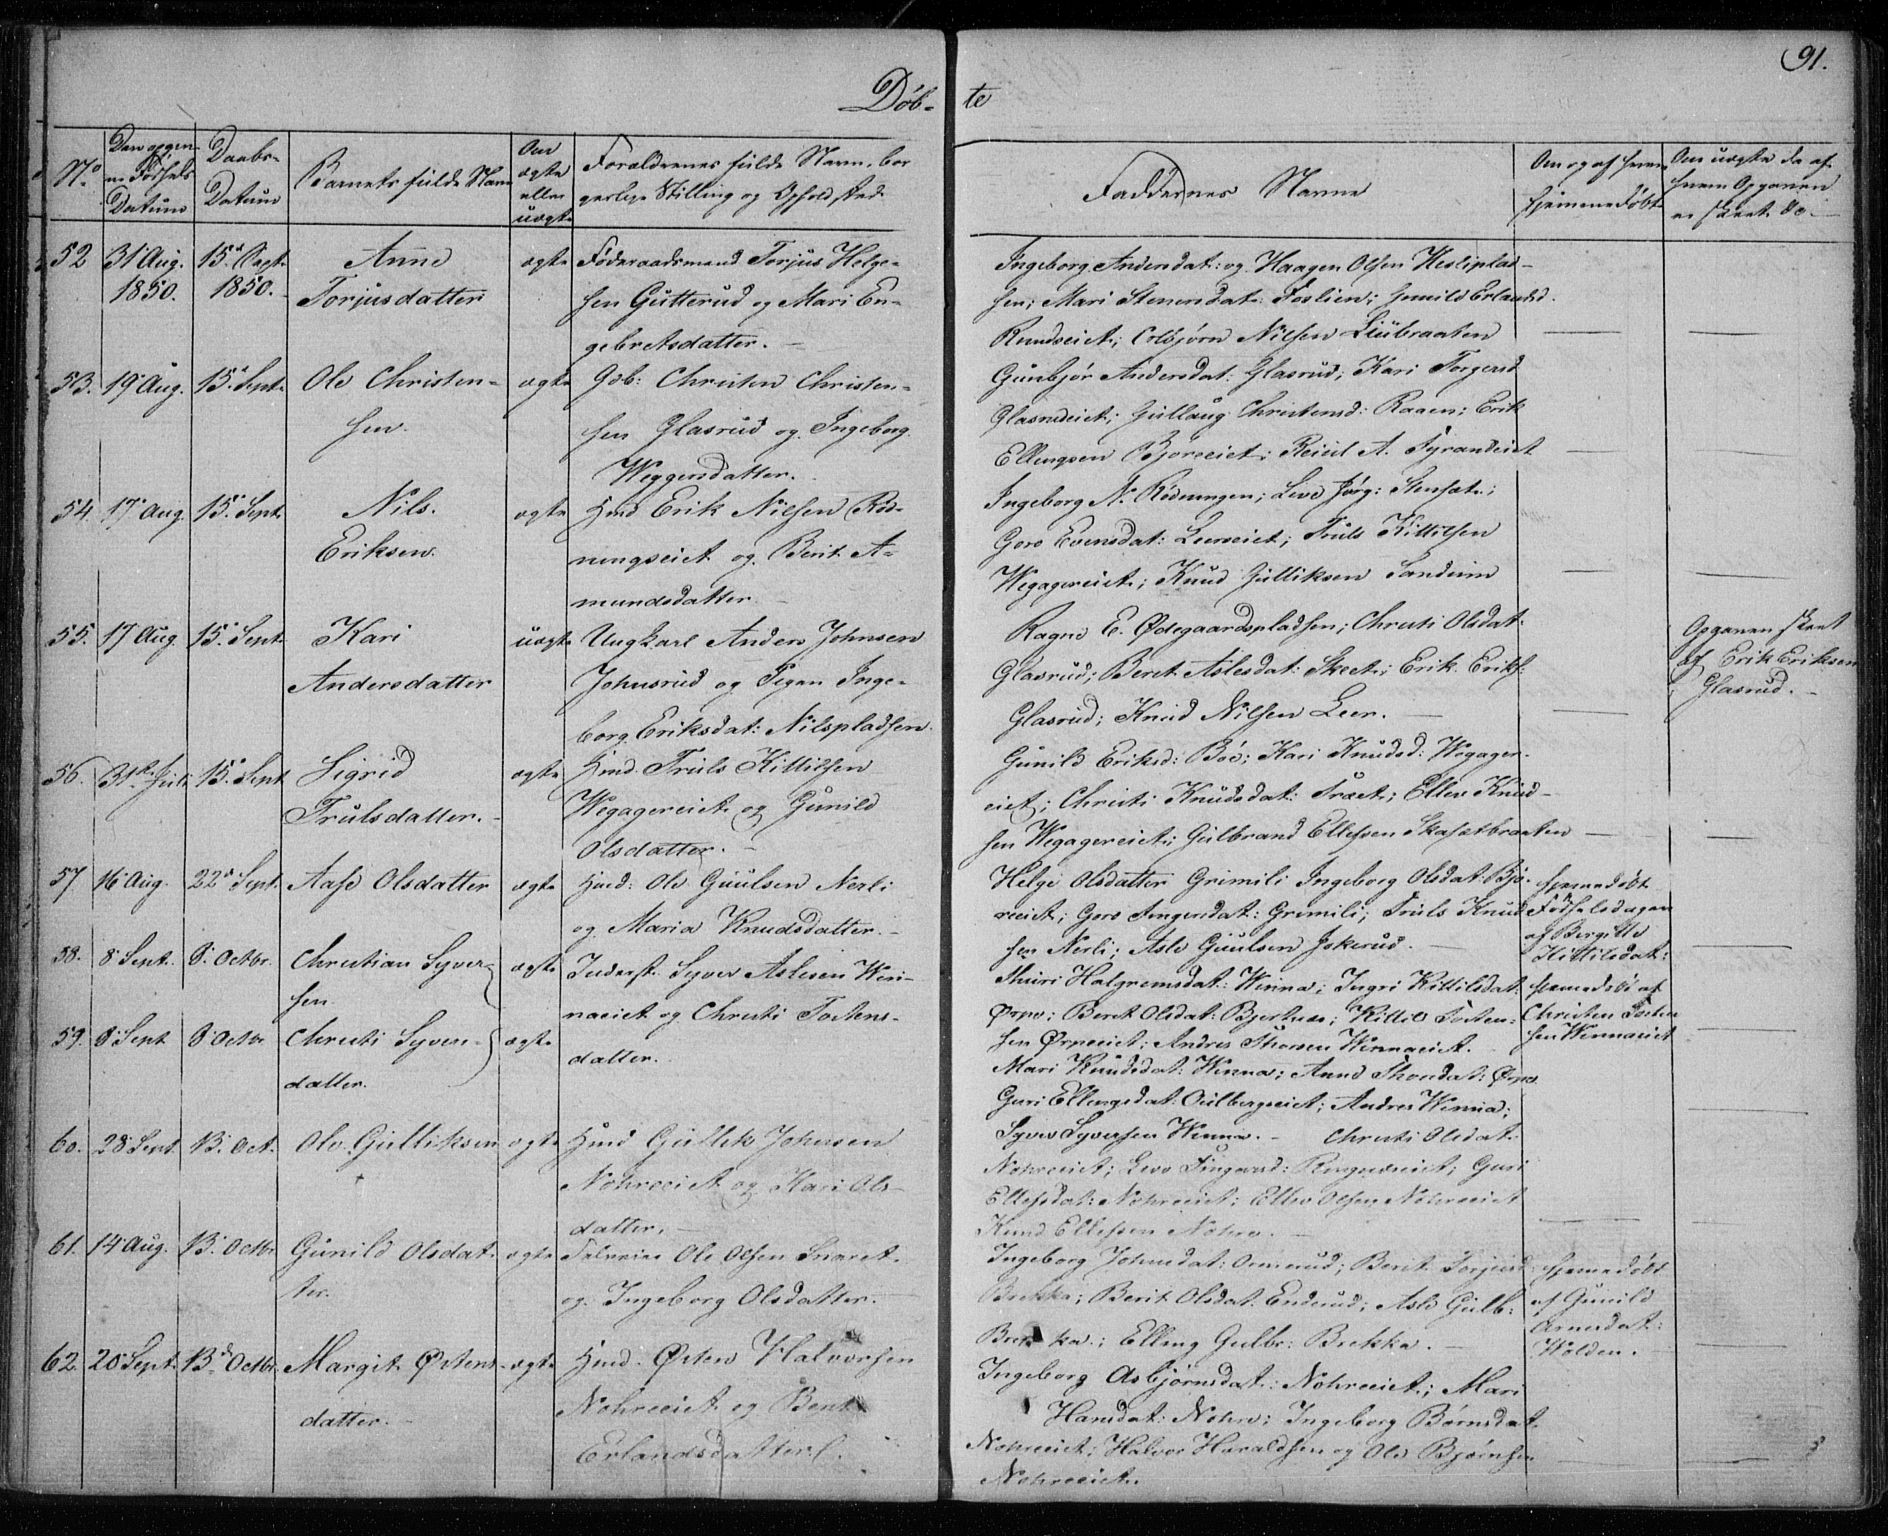 91.
Døb- te
No
Den opgivne Fødsels Datum
Daabs- Datum
Barnets fulde Navn
Om ægte eller uægte
Forældrenes fulde Navn, borgerlige Stilling og Opholdsted
Faddernes Navne
Om og af hvem hjemmedøbt
Om uægte da af hvem Opgaven er skeet &c.
52 31 Aug. 1850. 15d Sept. 1850. Anne Torjusdatter ægte
Føderaadsmand Torjus Helge-
sen Gutterud og Mari En-
gebretsdatter.
Ingeborg Andersdat: og Haagen Olsen
sen; Mari Stenersdat: Foslien; Gunild Erlandsd.
Rundseiet; Nilsen Liübraaten
53. 19 Aug. 15d Sept. Ole Christen-
sen. ægte
Gdb: Christen Christen-
sen Glasrud og Ingeborg
Weggersdatter.
Gunbjør Andersdat: Glasrud; Kari Torgersd
Glasrudeiet; Gullaug Christensd: Raaen; Erik
Ellingsen A.
54 17 Aug. 15. Sept. Nils.
Eriksen. ægte
Hmd Erik Nilsen Rød-
nungseiet og Berit A-
mundsdatter
Ingeborg N. Rødningen; Live
Goro Evensdat: Leereiet; Truls Kittilsen
Wegagereiet; Knud Gulliksen Sandum
55. 17 Aug. 15. Sept. Kari
Andersdatter uægte
Ungkarl Anders Johnsen
Johnsrud og Pigen Inge-
borg Eriksdat: Nilspladsen.
Ragne E. Ødegaardspladsen; Christi Olsdat:
Glasrud; Beret Aslesdat: Erik Eriks:
Glasrud; Knud Nilsen Leer.
Opgaven skeet
af Erik Eriksen
Glasrud.
56. 31te Juli 15. Sept Sigrid
Trulsdatter. ægte
Hmd Truls Kittilsen
Wegagereiet og Gunild
Olsdatter.
Gunild Eriksd: Böe; Kari Knudsd: Wegager-
eiet; Christi Knudsdat: Træt; Ellev Knud-
sen Wegagereiet; Gulbrand Ellefsen Skasætbraaten
57 16 Aug. 22d Sept. Aase Olsdatter ægte
Hmd: Ole Guulsen Nerli
og Maria Knudsdatter.
Helge Olsdatter Grimili Ingeborg Olsdat: Bjø-
reeiet; Goro Grimili; Truls Knud-
sen Nerli; Asle Guulsen Jokerud.
Hjemmedøbt
Fødselsdagen
af Birgitte
Kittilsdat:
58. 8 Sept. 8. Octbr. Christian Syver-
sen ægte
Inderst. Syver Aslesen Win-
naeiet og Christi Torstens-
datter.
Thuri Halgrimsdat: Winna; Ingri Kittilsdat:
Ørpe; Beret Olsdat: Kittil Torsten-
sen Ørpeeiet; Andres Thorsen Winnaeiet.
hjemmedøbt af
Christen Torsten
sen Winnaeiet
59. 8 Sept 8 Octbr Christi Syvers-
datter. ægte
Mari Knudsdat: Winna; Anne Thorsdat: Ørpe
Guri Ellingsdat: Andres Winna;
Syver Syversen Winna.
60. 28 Sept B. Oct. Ole Gulliksen ægte
Hmd Gullik Johnsen
Nohreeiet og Kari Ols-
datter.
Christi Olsdat:
Nohreeiet; Guri
Ellefsdat: Nohreeiet; Ellev Olsen Nohreeiet
Knud Ellefsen Nohre.
61. 14 Aug. B. Octbr Gunild Olsdat-
ter. ægte
Ole Olsen
og Ingeborg Olsdatter.
Ingeborg Johnsdat: Ormerud; Berit Torjusd:
Brekka; Berit Olsdat: Enderud; Asle Gulb:
Brekka; Elling Gulbr: Brekka.
Hjemmedøbt
af Gunild
Arnesdat:
Wolden.
62 20 Sept. B. Octbr. Margit Østens-
datter. ægte
Hmd. Østen Halvorsen
Nohreeiet og Berit
Erlandsdatter.
Ingeborg Asbjørnsdat: Nohreeiet; Mari
Hansdat: Nohre; Ingeborg Børnsdat
Nohreeiet; Halvor Haraldsen og Ole Bjørnsen
Nohreeiet.